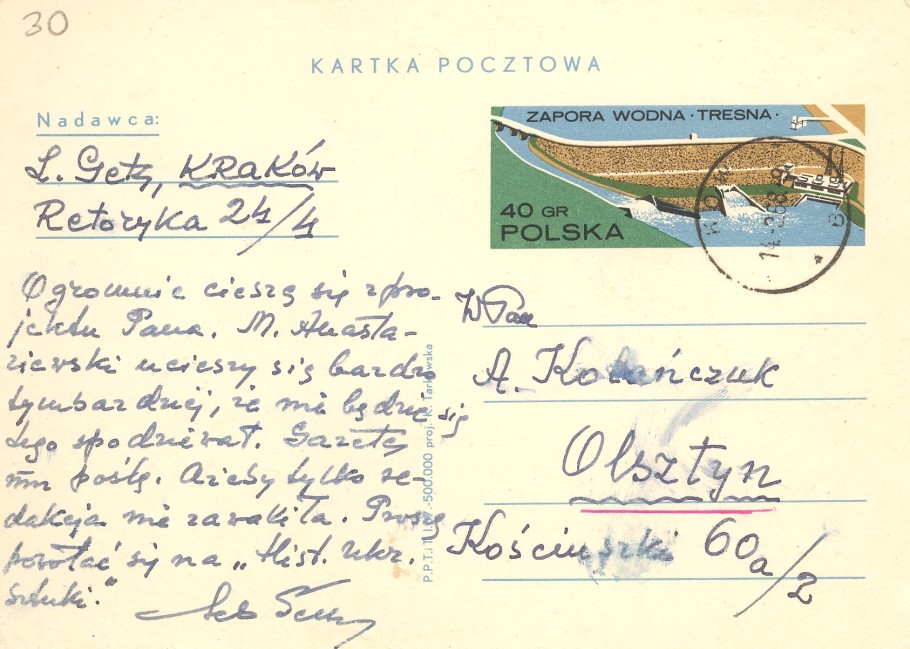 30
KARTKA POCZTOWA
Nadawca:
L. Getz, KRAKÓW
Retoryka 24/4
ZAPORA WODNA · TRESNA ·
40 GR
POLSKA
Ogromnie cieszę się z pro-
jektu Pana. M. Anasta-
ziewski ucieszy się bardzo
tymbardziej, że nie będzie się
tego spodziewał. Gazetę
mu poślę. Ażeby tylko re-
dakcja nie zawaliła. Proszę
powołać się na „Hist. Ukr.
Sztuki."
WPan
A. Kolańczuk
Olsztyn
Kościuszki 60a/2
P.P.T.i T. 500.000 proj. K. Tarkowska